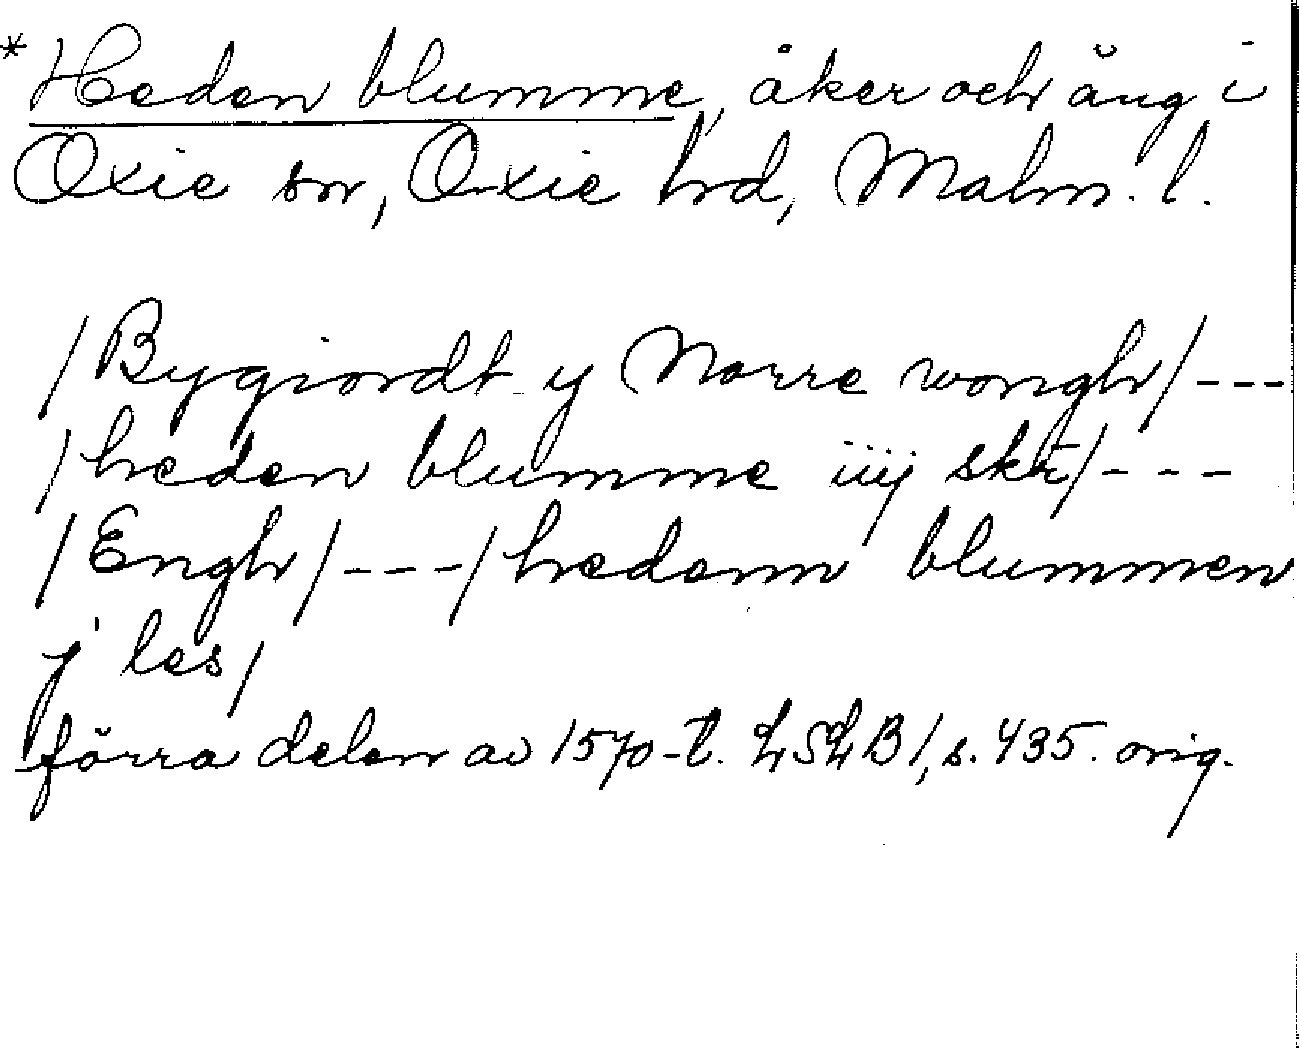 *Heden blumme, åker och äng i
Oxie sn, Oxie hd, Malm. l.
/Bygiordt y Norre wongh/---
/heden blumme iiij skr/---
/Engh/---/hedenn blummen
j les/
förra delen av 1570-t. LSLB 1, s. 435. orig.